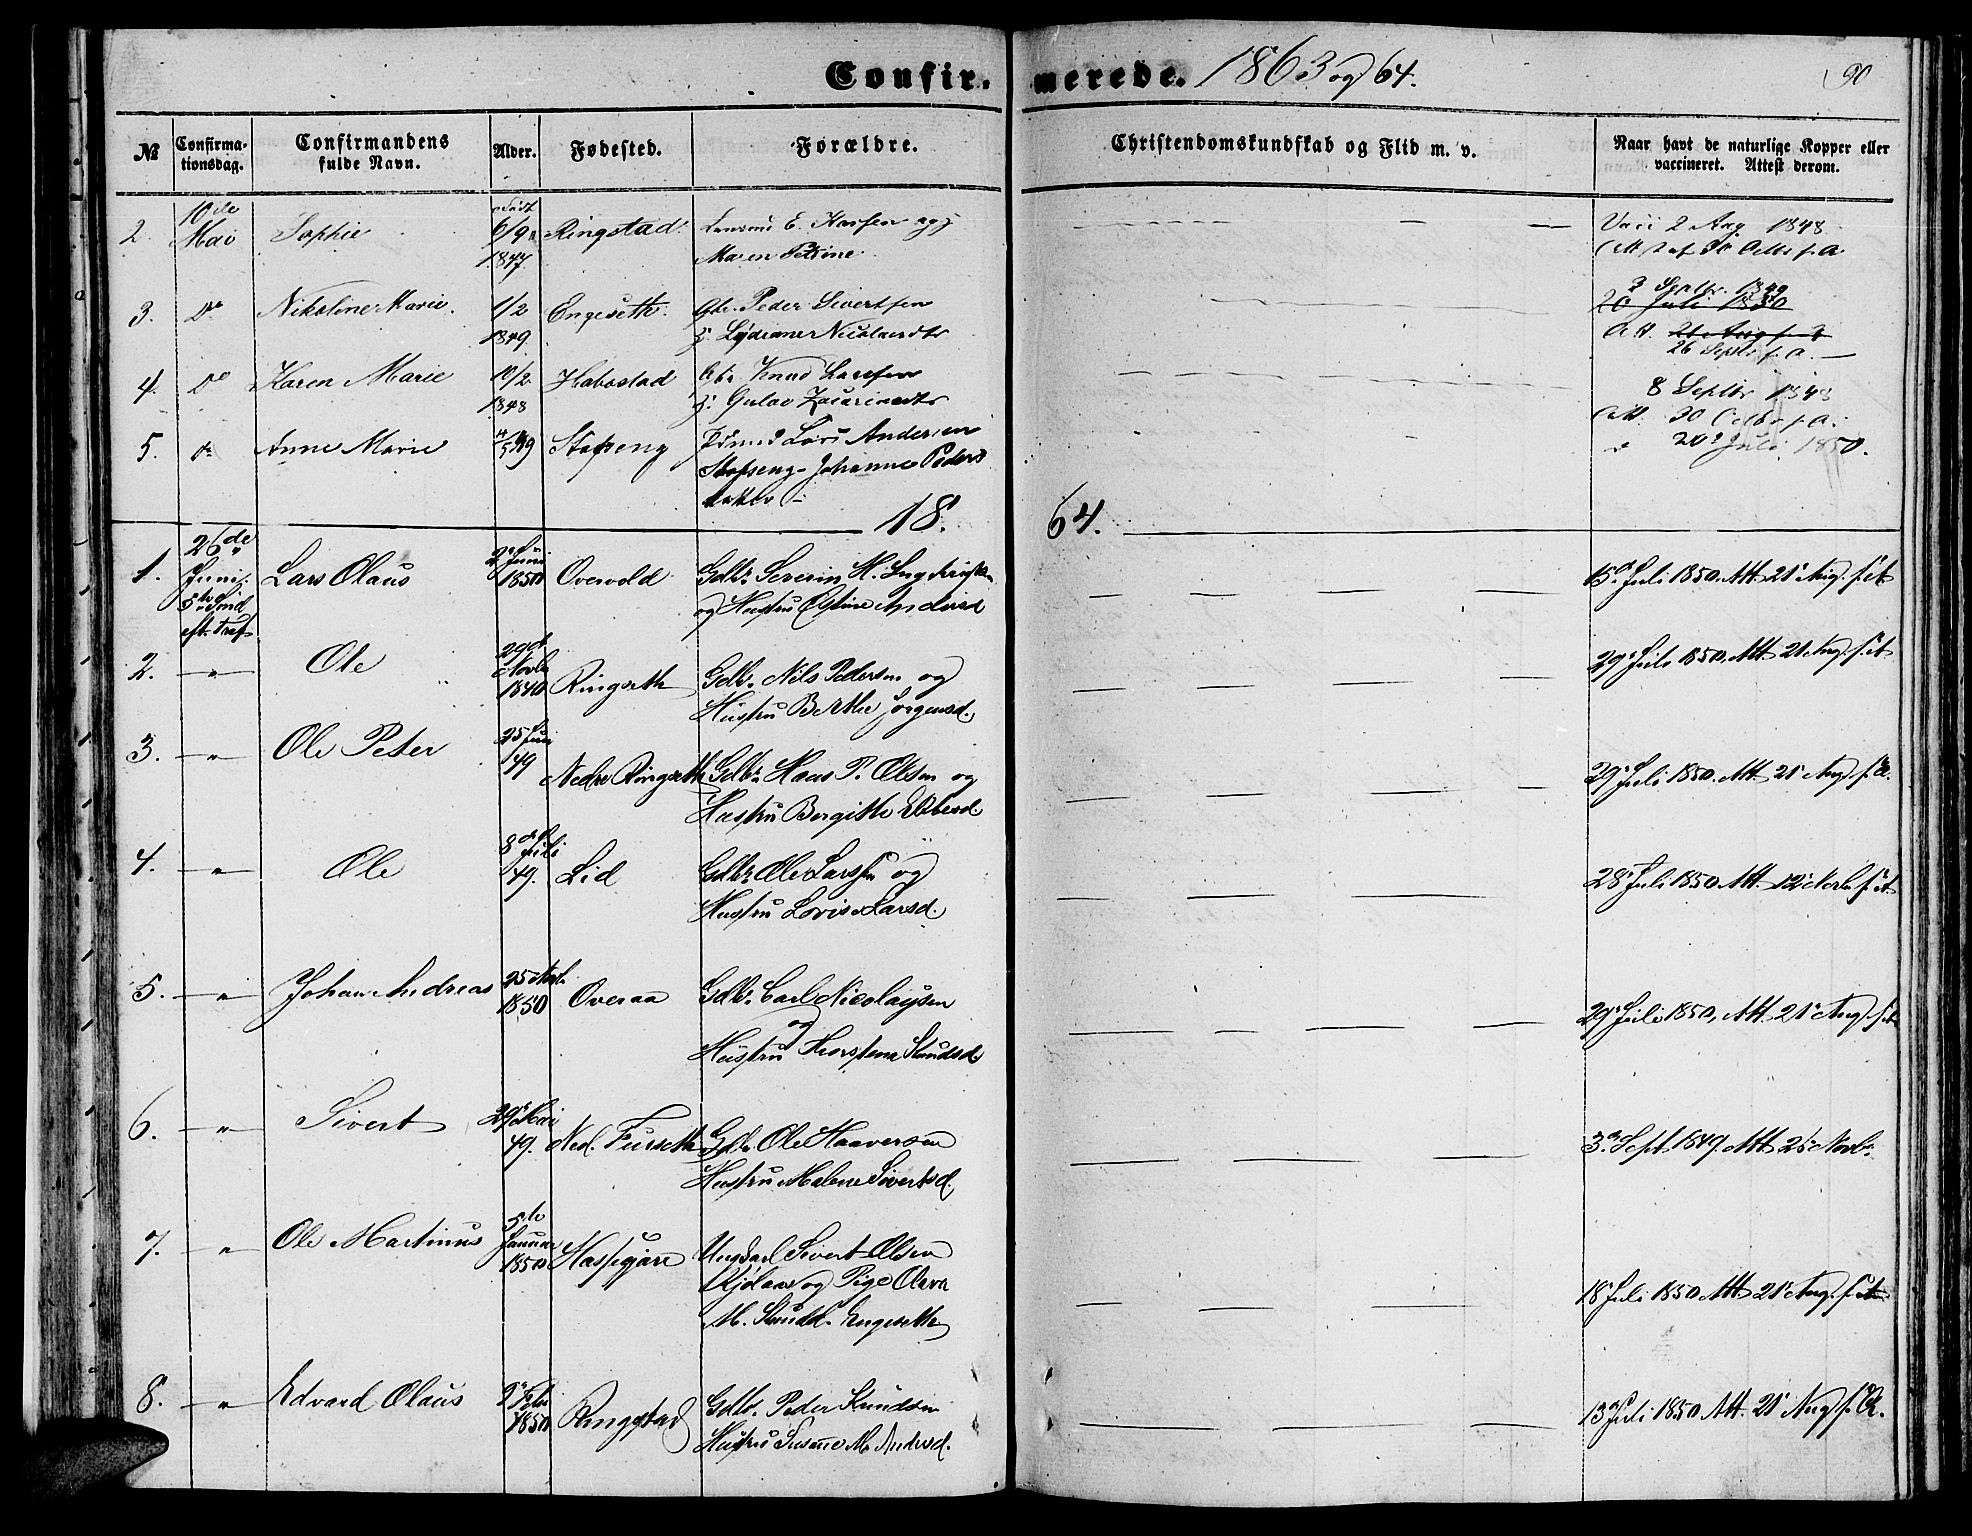 Confirmerede. 1863 og 64.
90
No
Confirmationsdag.
Confirmandens fulde Navn.
Alder.
Fødested.
Forældre.
Christendomskundskab og Flid m. v.
Naar havt de naturlige Kopper eller vaccineret. Attest derom.
2. 10de Mai Sophie født 6/9 1847 Ringstad E. og
Maren Petrine
2 Aug 1848
3. Do Nikoline Marie. 1/2 1849 Engeseth Gbr. Peder Sivertsen
Nicolaidtr
3 Septbr. 1849
20 Juli 1850
Att. 21 Aug
26 Septbr f. A.
4. Do Karen Marie 10/2 1848 Habostad Gbr Knud Larssen
8 Septbr 1848
Att. 30 Octbr f. A.
5. Do Anne Marie 49 Stopseng Lars Andersen
Stopseng - Johanne Peders
datter
20de Juli 1850.
1864.
1. 26de Juni 5te Sønd eft. Tref Lars Olaus 2 Juni 1850 Overvold Gdbr. Severin H.
og Hustru Anders
15de Juli 1850. Att. 21 Aug. f. A.
2. " Ole 29de Novbr 1849 Ringseth Gdbr. Nils Pedersen og
Hustru Berthe Jørgensd.
29 Juli 1850. Att. 21 Aug. f. A.
3. " Ole Peter 25 Juni 49 Nedre Ringseth Gdbr. Hans P. Olsen og
Hustru Bergithe
29 Juli 1850. Att. 21 Aug. f. A.
4. " Ole 8de Juli 49. Lid Gdbr. Ole Larssen og
Hustru Lovise Larsd.
28 Juli 1850. Att. 12 Novb. f. A.
5. " Johan Andreas 25 1850 Overaa Gdbr. Carl Nicolaysen
og
Hustru Knudsd.
29 Juli 1850, Att. 21 Aug. f. A.
6. " Sivert 29 Mai 49. Ned. Furseth Gdbr. Ole Haaversen
Hustru Malene Sivertsd.
3de Sept 1849. Att. 25 Novbr.
7. " Ole Martinus 5te Januar 1850 Hassegjære Ungkarl Sivert Olsen
og Pige Olava
M. Knudsd. Engeseth
18 Juli 1850 Att. 21 Aug. f. A.
8. " Edvard Olaus 9 Febr 1850 Ringstad Gdbr. Peder Knudsen
Hustru Susanne M. Andersd.
13 Juli 1850 Att. 21 Aug. f. A.